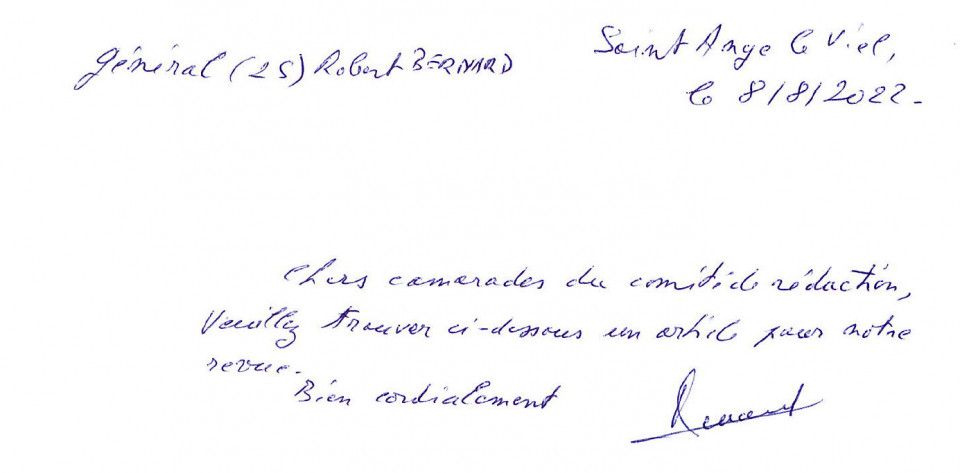 Général (2S) Robert BERNARD
Saint Ange le Viel,
le 8/8/2022.
Chers camarades du comité de rédaction,
Veuillez trouver ci-dessous un article pour notre
revue.
Bien cordialement